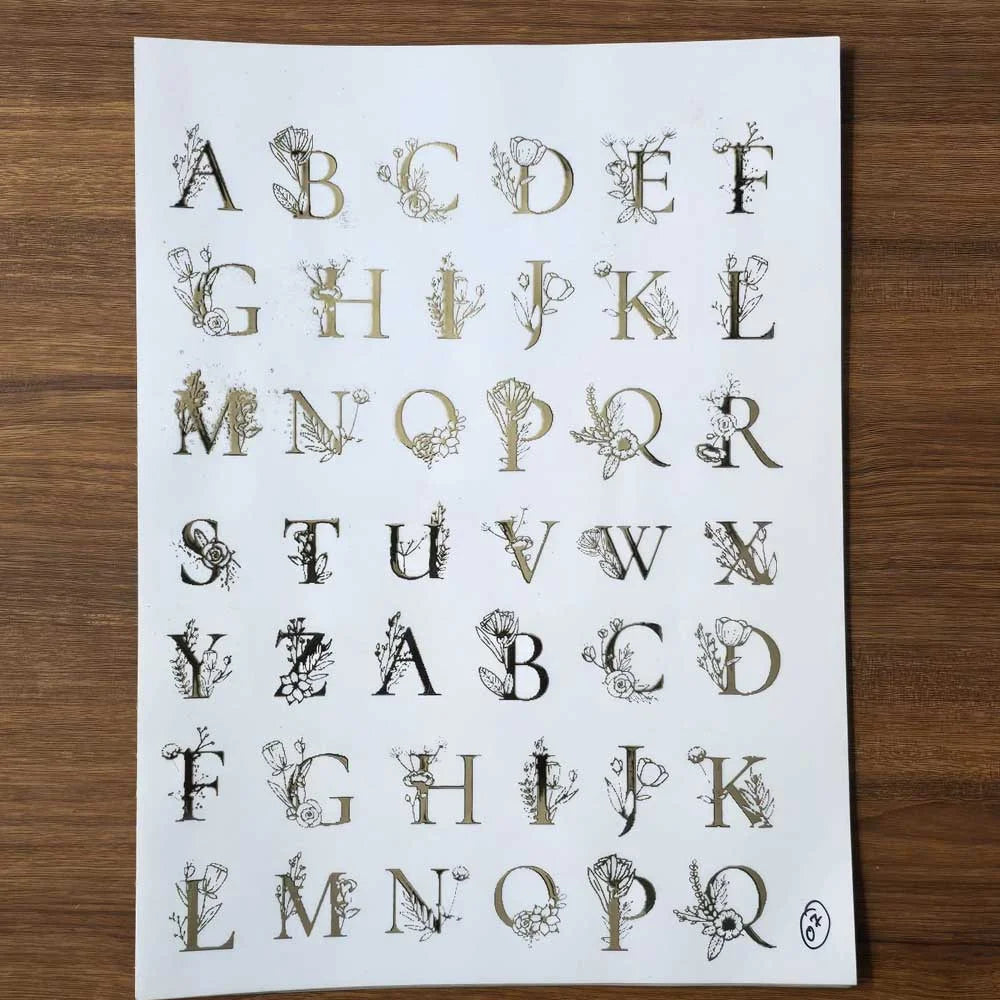 A B C D E F
G H I J K L
M N O P Q R
S T U V W X
Y Z A B C D
F G H I J K
L M N O P Q